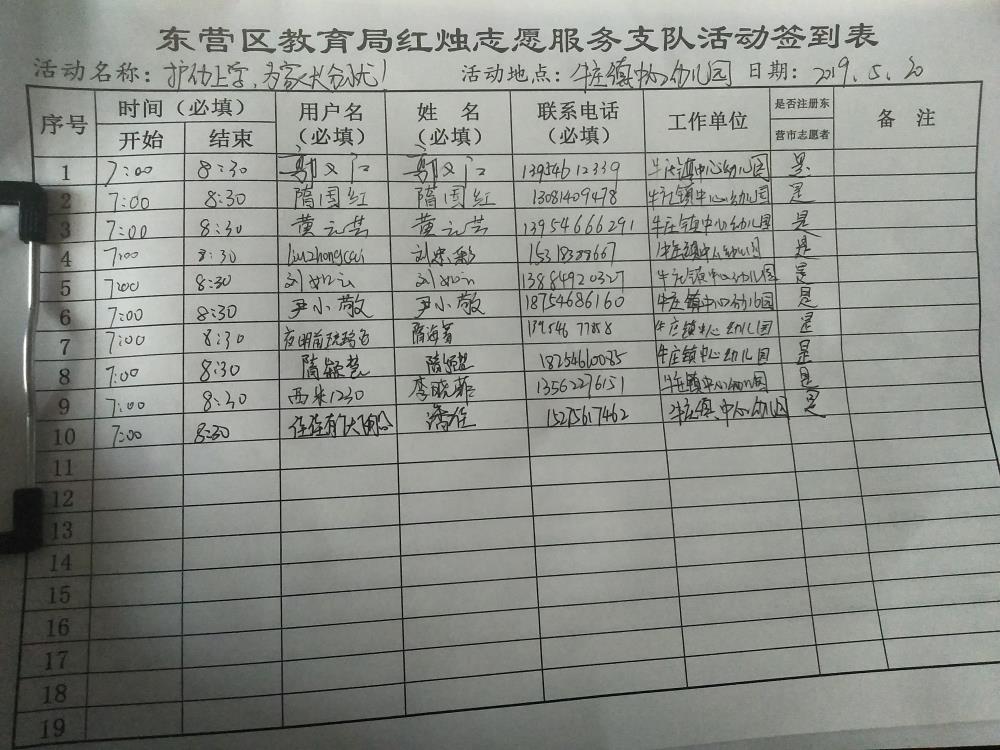 东营区教育局红烛志愿服务支队活动签到表
活动名称：护幼上学，为家长分忧！ 活动地点：牛庄镇中心幼儿园 日期：2019.5.20
序号 时间（必填） 用户名（必填） 姓名（必填） 联系电话（必填） 工作单位 是否注册东营市志愿者 备注
开始 结束
1 7:00 8:30 13954612339 牛庄镇中心幼儿园 是
2 7:00 8:30 隋国红 隋国红 13081409478 牛庄镇中心幼儿园 是
3 7:00 8:30 黄元芸 黄元芸 13954666291 牛庄镇中心幼儿园 是
4 7:00 8:30 liuzhongcai 刘忠彩 牛庄镇中心幼儿园 是
5 7:00 8:30 刘 刘 13884920327 牛庄镇中心幼儿园 是
6 7:00 8:30 尹小敬 尹小敬 18754686160 牛庄镇中心幼儿园 是
7 7:00 8:30 隋海燕 13954677858 牛庄镇中心幼儿园 是
8 7:00 8:30 隋 隋 18254610085 牛庄镇中心幼儿园 是
9 7:00 8:30 西米1230 李晓菲 13562296151 牛庄镇中心幼儿园 是
10 7:00 8:30 潘佳 15275617462 牛庄镇中心幼儿园 是
11
12
13
14
15
16
17
18
19